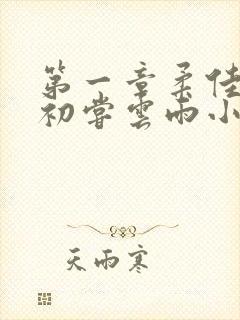 第一章柔佳
初尝雲雨小
天雨寒